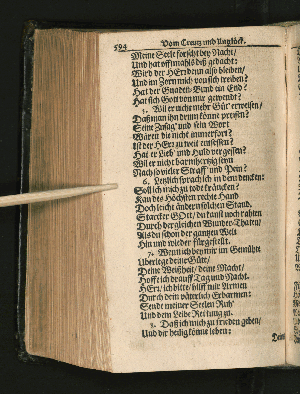 594 Vom Creutz und Unglück.
Meine Seele forscht bey Nacht/
Und hat offtmahls diß gedacht:
Wird der HErr denn also bleiben/
Und im Zorn mich von sich treiben?
Hat der Gnaden-Bund ein End?
Hat sich Gott von mir gewendt?
5. Will er nicht mehr Güt' erweisen/
Daß man ihn drum könne preisen?
Seine Zusag' und sein Wort
Wären die nicht immerfort?
Ist der HErr zu weit entsessen?
Hat er Lieb' und Huld vergessen?
Wil er nicht barmhertzig seyn
Nach so vieler Straff' und Pein?
6. Letzlich sprach ich in dem dencken:
Soll ich mich zu todt kräncken?
Kan des Höchsten rechte Hand
Doch leicht ändern solchen Stand.
Starcker GOtt/ du kanst noch rahten
Durch dergleichen Wunder-Thaten/
Als du schon der gantzen Welt
Hin und wieder fürgestellt.
7. Wenn ich bey mir im Gemühte
Uberlege deine Güte/
Deine Weißheit/ deine Macht/
Hoffe ich drauff Tag und Nacht.
HErr/ ich bitte/ hilff mir Armen
Durch dein väterlich Erbarmen:
Sende meiner Seelen Ruh'
Und dem Leibe Rettung zu.
8. Daß ich mich zu frieden geben/
Und dir heilig könne leben: